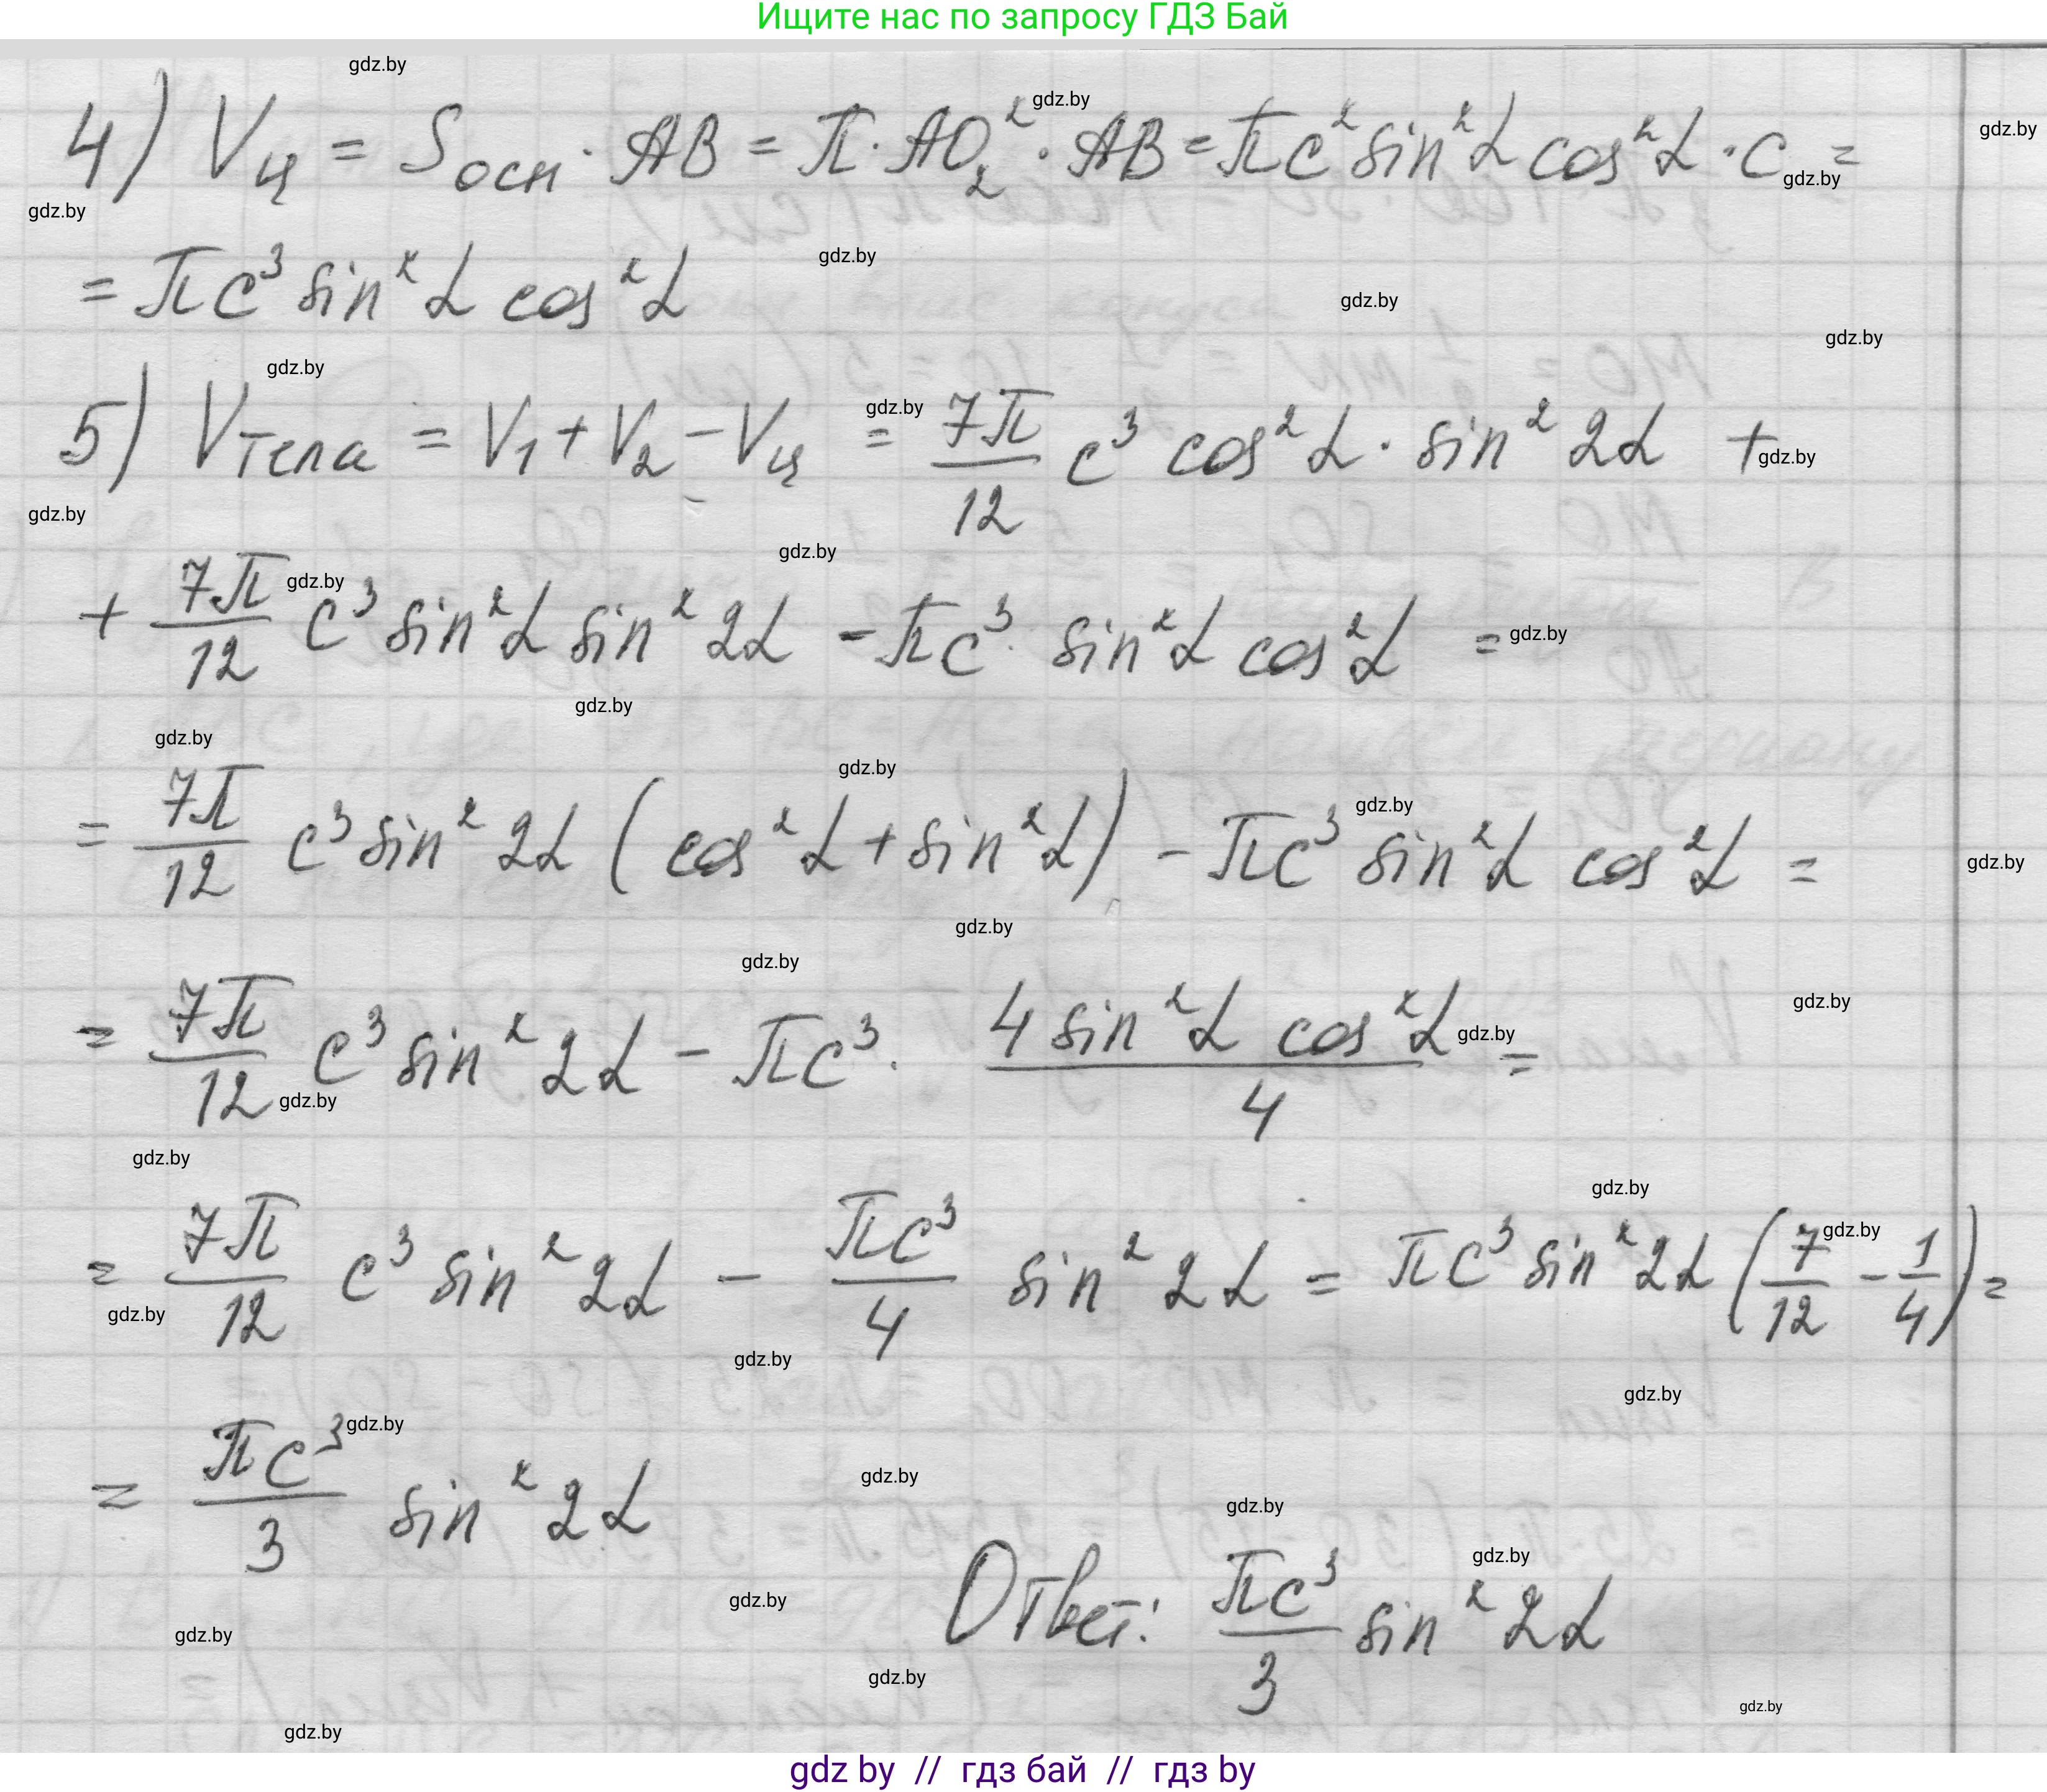 Ищите нас по запросу ГДЗ Бай
4) Vц = Sосн · AB = π · AO₂² · AB = πc² sin²α cos²α · c =
= πc³ sin²α cos²α
5) Vтела = V₁ + V₂ - Vц = 7π/12 c³ cos²α · sin² 2α +
+ 7π/12 c³ sin²α sin² 2α - πc³ · sin²α cos²α =
= 7π/12 c³ sin² 2α (cos²α + sin²α) - πc³ sin²α cos²α =
= 7π/12 c³ sin² 2α - πc³ · 4 sin²α cos²α / 4 =
= 7π/12 c³ sin² 2α - πc³/4 sin² 2α = πc³ sin² 2α (7/12 - 1/4) =
= πc³/3 sin² 2α
Ответ: πc³/3 sin² 2α
gdz by // гдз бай // гдз by